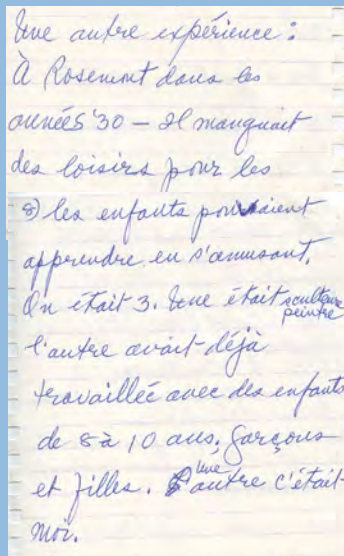 Une autre expérience :
À Rosemont dans les
années '30 – Il manquait
des loisirs pour les
8) les enfants pouvaient
apprendre en s'amusant.
On était 3. Une était sculpteure
peintre
l'autre avait déjà
travaillée avec des enfants
de 8 à 10 ans. Garçons
et filles. Une autre c'était
moi.